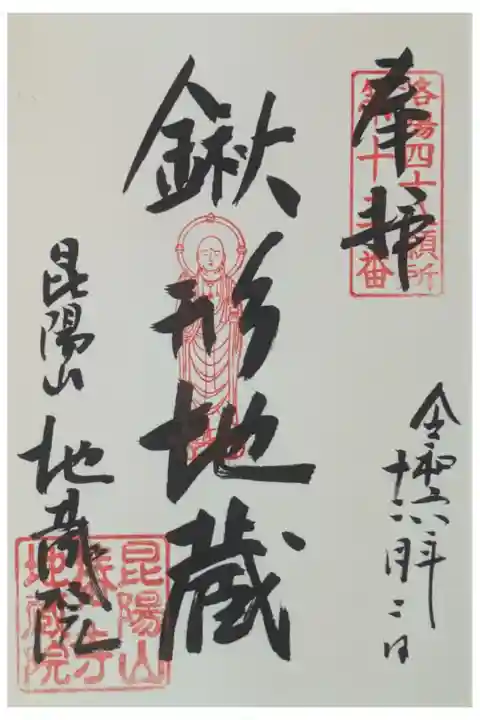 奉拝
洛陽四十八願所
第十三番
令和六年
十二月二日
鍬形地蔵
昆陽山 地蔵院
昆陽山
地蔵院